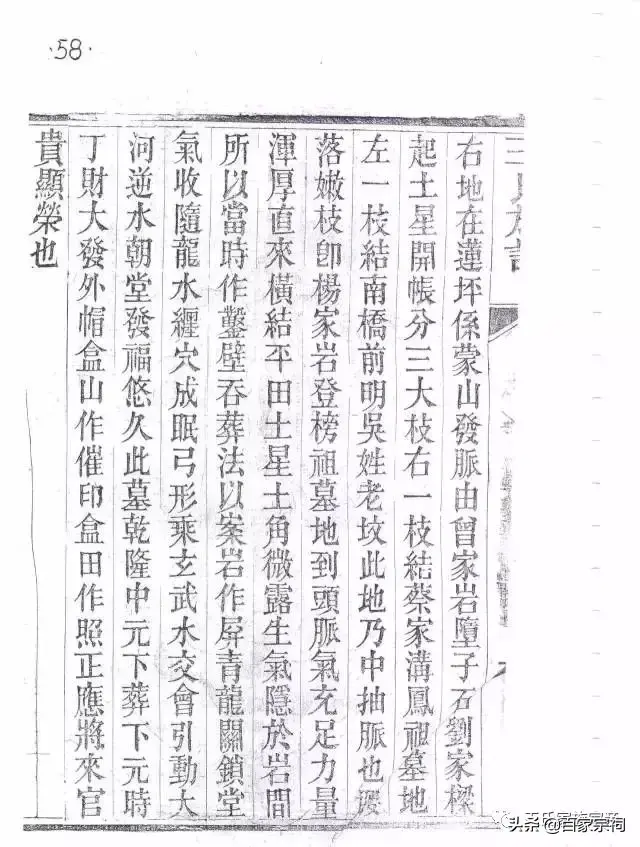 ·58·
右地在蓮坪係蒙山發脈由曾家岩墮子石劉家樑
起土星開帳分三大枝右一枝結蔡家溝鳳祖墓地
左一枝結南橋前明吳姓老坟此地乃中抽脈也
落嫩枝卽楊家岩登榜祖墓地到頭脈氣充足力量
渾厚直來橫結平田土星土角微露生氣隱於岩間
所以當時作鑿壁吞葬法以案岩作屏青龍關鎖堂
氣收隨龍水纏穴成眠弓形乘玄武水交會引動大
河逆水朝堂發福悠久此墓乾隆中元下葬下元時
丁財大發外帽盒山作催印盒田作照正應將來官
貴顯榮也
头条@百家宗祠